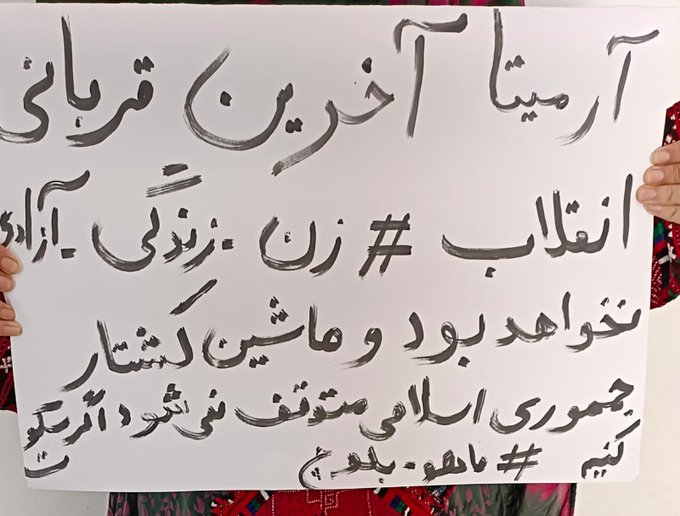 آرمیتا آخرین قربانی
انقلاب # زن - زندگی - آزادی
نخواهد بود و ماشین کشتار
جمهوری اسلامی متوقف نمی شود اگر سکوت
کنیم # ماهو - بلوچ